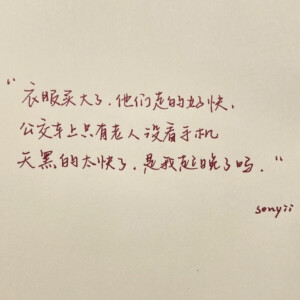 “衣服买大了．他们走的好快．
公交车上只有老人没看手机
天黑的太快了．是我起晚了吗．”
sonyii